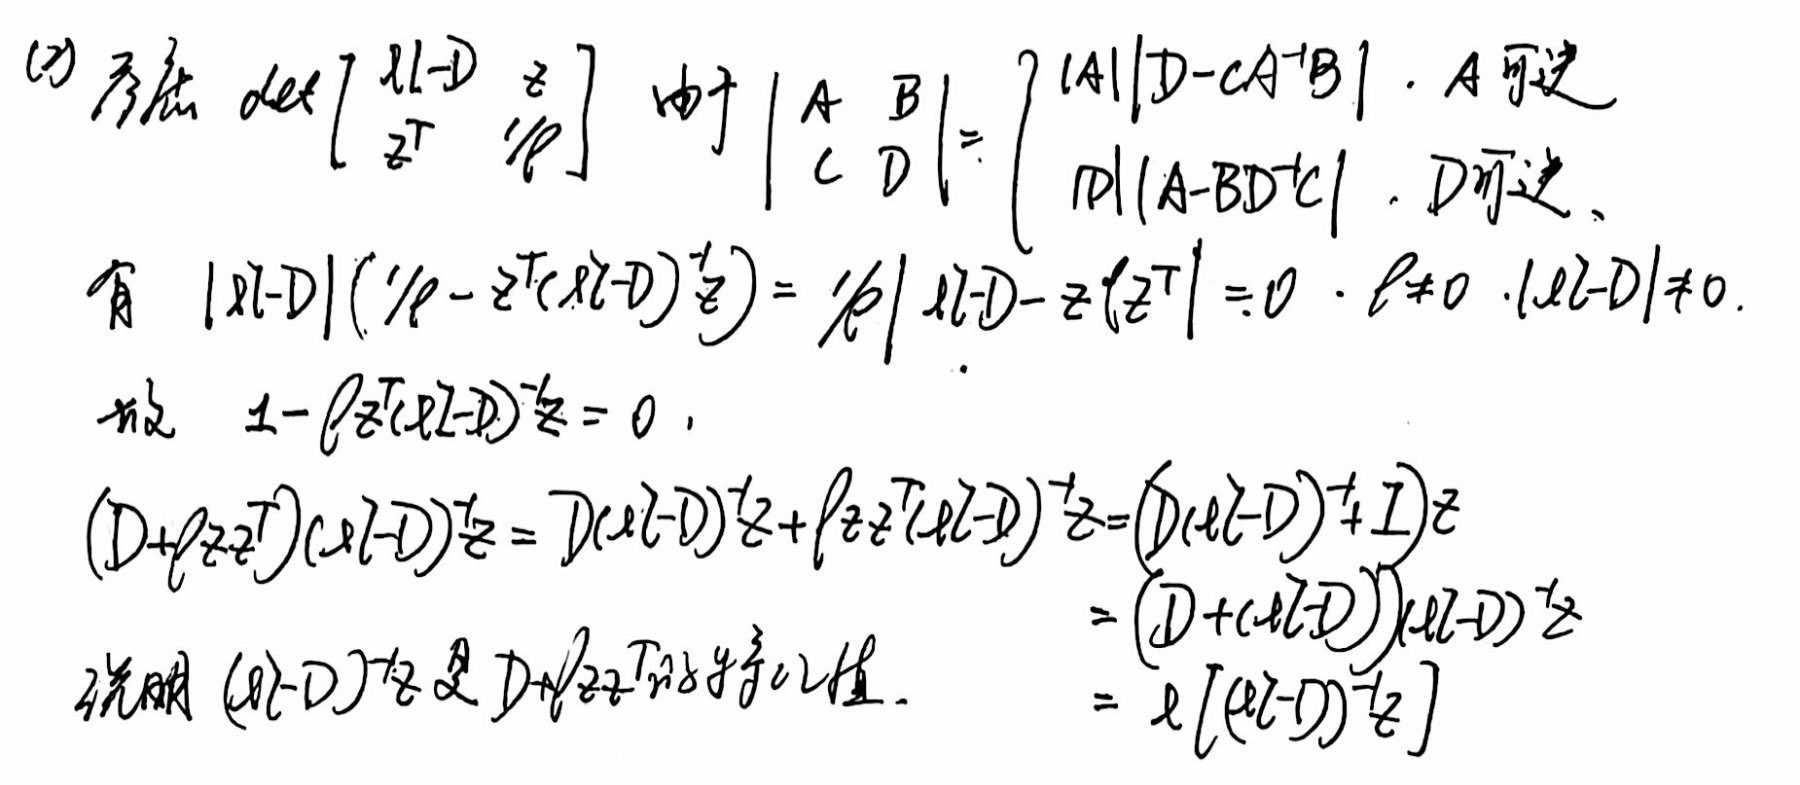 (2) 考虑 det [ λI-D z ; z^T 1/ρ ] 由于 | A B ; C D | = { |A||D-CA^{-1}B| . A可逆 ; |D||A-BD^{-1}C| . D可逆、
有 |λI-D| (1/ρ - z^T(λI-D)^{-1}z) = 1/ρ | λI-D-zρz^T | = 0 . ρ≠0 . |λI-D|≠0.
故 1-ρz^T(λI-D)^{-1}z = 0 .
(D+ρzz^T)(λI-D)^{-1}z = D(λI-D)^{-1}z+ρzz^T(λI-D)^{-1}z=(D(λI-D)^{-1}+I)z
= (D+(λI-D))(λI-D)^{-1}z
= λ[(λI-D)^{-1}z]
说明 (λI-D)^{-1}z 是 D+ρzz^T的特征值.